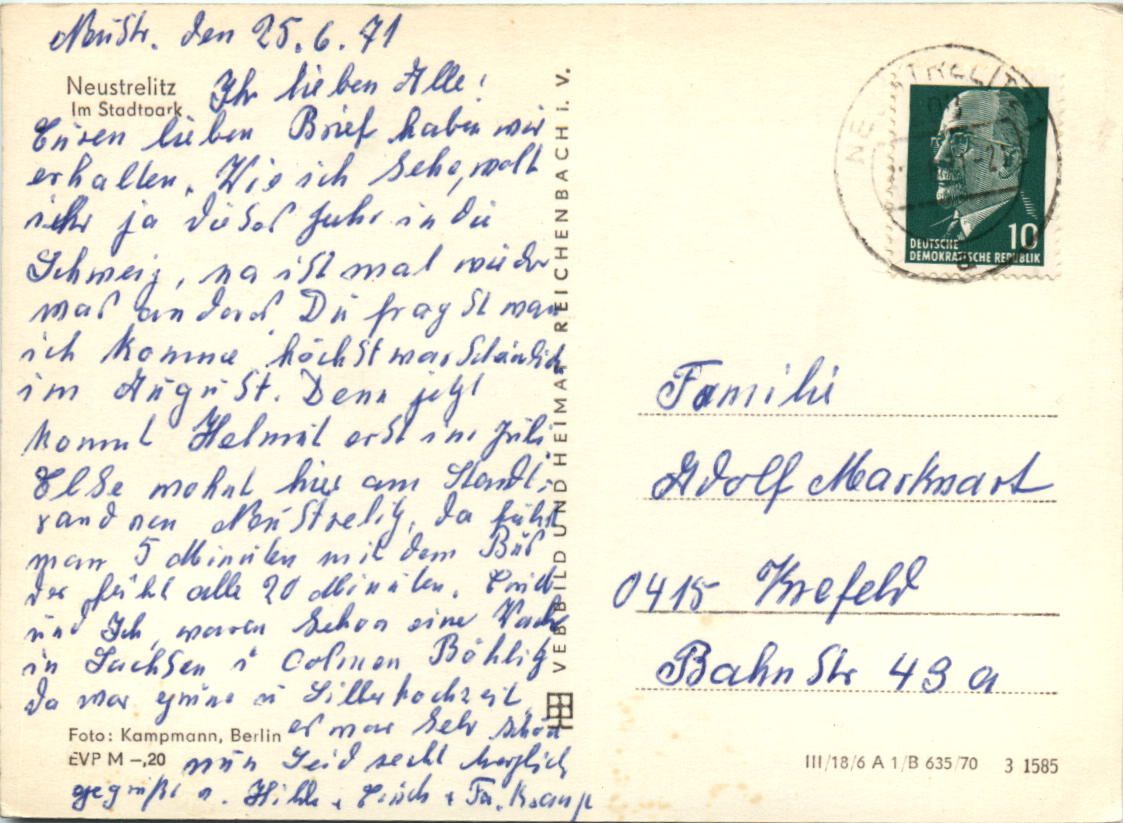 Neustr. den 25.6.71
Neustrelitz
Im Stadtpark
Ihr lieben Alle!
Euren lieben Brief haben wir
erhalten. Wie ich sehe, wollt
ihr ja dieses Jahr in die
Schweiz, na ist mal wieder
was anderes. Du fragst wan
ich komme, höchstwarscheinlich
im August. Denn jetzt
kommt Helmut erst im Juli
Else wohnt hier am Standt,
rand von Neustrelitz, da fährt
man 5 Minuten mit dem Bus
der fährt alle 20 Minuten.
und Ich, waren schon eine Woche
in Sachsen i Böhlitz
da war grüne u Silberhochzeit,
es war sehr schön
nun Seid recht herzlich
gegrüßt v. + + Fa.
Foto: Kampmann, Berlin
EVP M –,20
VEB BILD UND HEIMAT REICHENBACH i. V.
NEUSTRELITZ
DEUTSCHE
DEMOKRATISCHE REPUBLIK
10
Familie
Adolf Markwart
0415 Krefeld
Bahnstr 49 a
III/18/6 A 1/B 635/70 3 1585